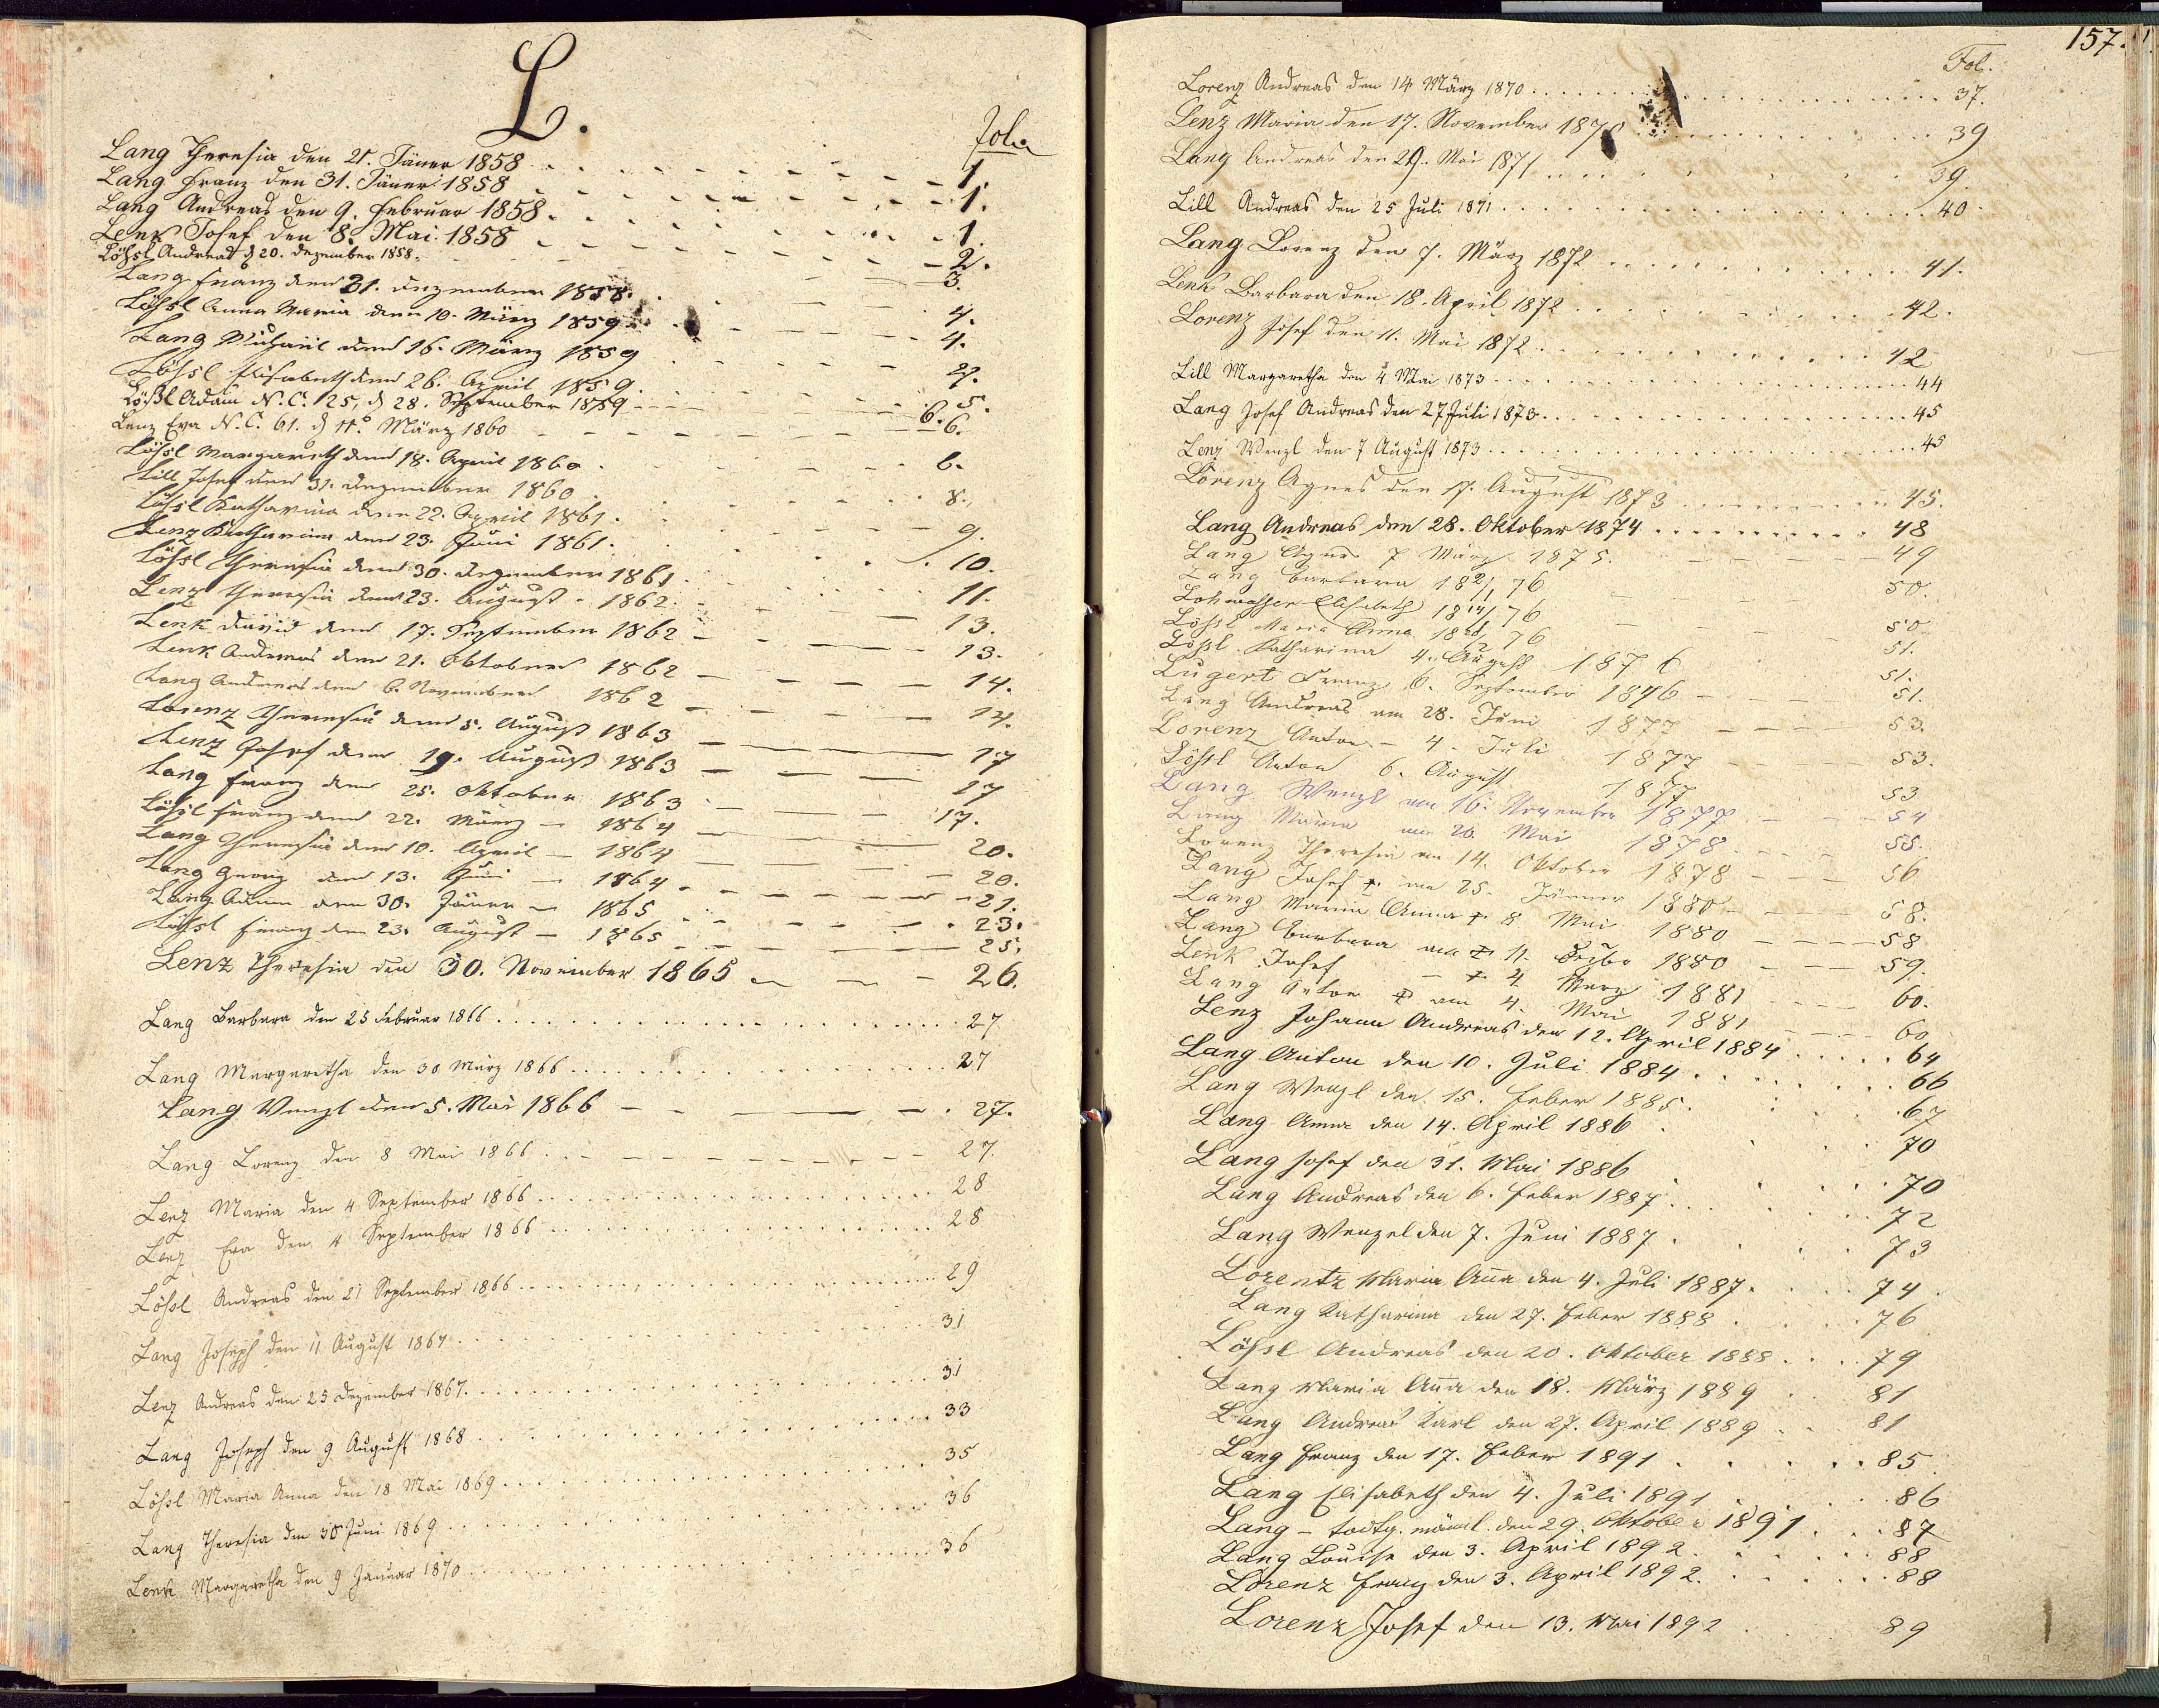 L.
Folio
Lang Theresia den 21. Jäner 1858 1.
Lang Franz den 31. Jäner 1858 1.
Lang Andreas den 9. Februar 1858. 1.
Lenk Josef den 8. Mai 1858 2.
Lößl Andreas d 20. Dezember 1858. 3.
Lang Franz den 31. Dezember 1858. 4.
Lößl Anna Maria den 10. März 1859 4.
Lang Michael den 16. März 1859
Lößl Elisabeth den 26. April 1859. 5.
Lößl Adam N.C. 125, d 28. September 1859 6.
Lenz Eva N.C. 61. d 11. März 1860 6.
Lößl Margareth den 18. April 1860 6.
Lill Josef den 31. Dezember 1860 8.
Lößl Katharina den 22. April 1861. 9.
Lenz Katharina den 23. Juni 1861. 10.
Lößl Theresia den 30. Dezember 1861 11.
Lenz Theresia den 23. August 1862. 13.
Lenk David den 17. September 1862 13.
Lenk Andreas den 21. Oktober 1862 14.
Lang Andreas den 6. November 1862 14.
Lorenz Theresia den 5. August 1863 17
Lenz Josef den 19. August 1863 17
Lang Franz den 25. Oktober 1863 17.
Lößl Franz den 22. März 1864 20.
Lang Theresia den 10. April 1864 20.
Lang Georg den 13. Juni 1864 21.
Lang Adam den 30. Jäner 1865 23.
Lößl Franz den 23. August 1865 25.
Lenz Theresia den 30. November 1865 26.
Lang Barbara den 25 Februar 1866 27
Lang Margaretha den 30 März 1866 27
Lang Wenzl den 5. Mai 1866 27.
Lang Lorenz den 8 Mai 1866 27.
Lenz Maria den 4 September 1866 28
Lenz Eva den 4 September 1866 28
Lößl Andreas den 21 September 1866 29
Lang Joseph den 11 August 1867 31
Lenz Andreas den 25 Dezember 1867. 31
Lang Joseph den 9 August 1868 33
Lößl Maria Anna den 18 Mai 1869 35
Lang Theresia den 30 Juni 1869 36
Lenk Margaretha den 9 Januar 1870 36
157.
Fol.
Lorenz Andreas den 14 März 1870 37.
Lenz Maria den 17. November 39
Lang Andreas den 29. Mai 1871 39.
Lill Andreas den 25 Juli 1871 40
Lang Lorenz den 7. März 1872 41.
Lenk Barbara den 18. April 1872 42.
Lorenz Josef den 11. Mai 1872 42
Lill Margaretha den 4 Mai 1873 44
Lang Josef Andreas den 27 Juli 1873 45
Lenz Wenzl den 7 August 1873 45
Lorenz Agnes den 17. August 1873 45.
Lang Andreas den 28. Oktober 1874 48
Lang Agnes 7 März 1875. 49
Lang Barbara 50.
Lohwasser Elisabeth 50
Lößl Maria Anna 51.
Lößl Katharina 4. August 1876 51.
Lugert Franz 6. September 1876 51.
Lang Andreas am 28. Juni 1877 53.
Lorenz Anton - 4. Juli 1877 53.
Lößl Anton 6. August 1877 53
Lang Wenzl am 16. November 1877 54
Lang Maria am 26 Mai 1878 55.
Lorenz Theresia am 14. Oktober 1878 56
Lang Josef am 25. Jänner 1880 58.
Lang Maria Anna 8 Mai 1880 58
Lang Barbara am 11. 1880 59.
Lenk Josef - 4 März 1881 60.
Lang Anton am 4. Mai 1881 60
Lenz Johann Andreas den 12. April 1884 64
Lang Anton den 10. Juli 1884 66
Lang Wenzl den 15. Feber 1885. 67
Lang Anna den 14. April 1886 70
Lang Josef den 31. Mai 1886 70
Lang Andreas den 6. Feber 1887. 72
Lang Wenzel den 7. Juni 1887. 73
Lorentz Maria Aña den 4. Juli 1887. 74.
Lang Katharina den 27. Feber 1888 76
Lößl Andreas den 20. Oktober 1888 79
Lang Maria Aña den 18. März 1889 81
Lang Andreas Karl den 27. April 1889 81
Lang Franz den 17. Feber 1891 85
Lang Elisabeth den 4. Juli 1891 86
Lang - todtg. mänl. den 29. Oktober 1891 87
Lang Louise den 3. April 1892. 88
Lorenz Franz den 3. April 1892. 88
Lorenz Josef den 13. Mai 1892 89